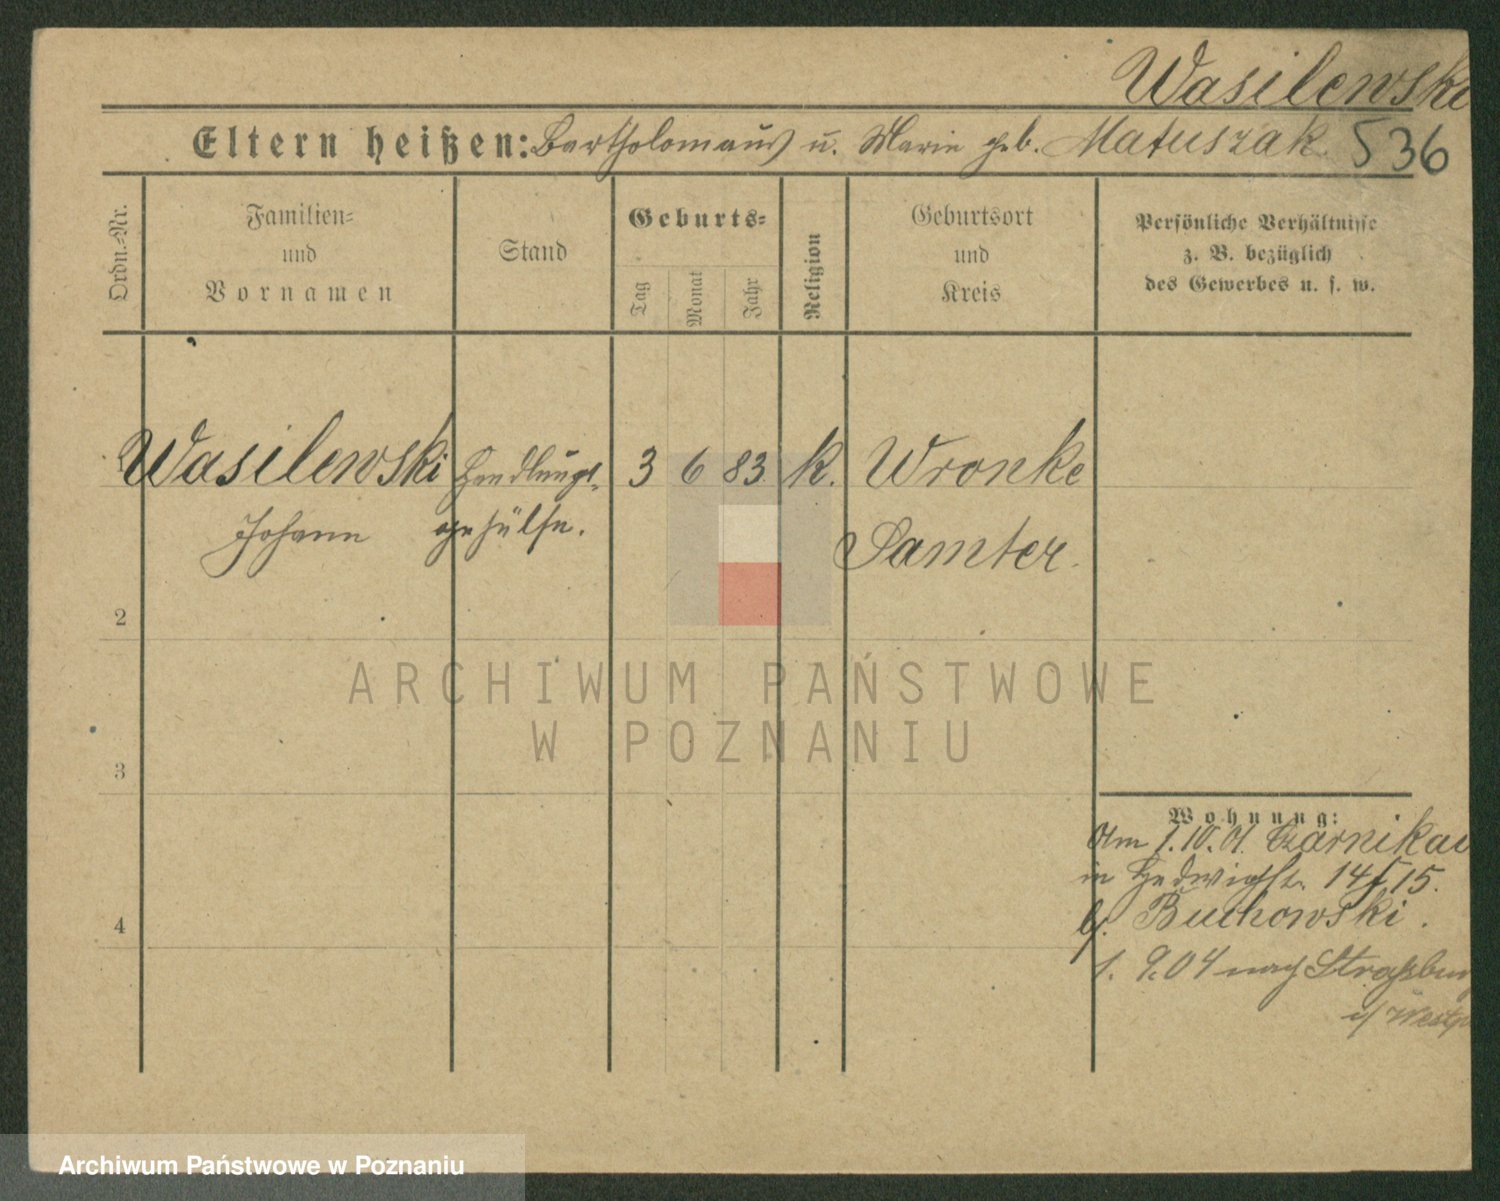 Wasilewski
Eltern heißen: Bartholomäus u. Marie geb. Matuszak. 536
Ordn.-Nr.
Familien-
und
Vornamen
Stand
Geburts-
Tag
Monat
Jahr
Religion
Geburtsort
und
Kreis
Persönliche Verhältnisse
z. B. bezüglich
des Gewerbes u. s. w.
Wasilewski Handlungs- 3 6 83 k. Wronke
Johann gehülfe. Samter.
2
ARCHIWUM PAŃSTWOWE
W POZNANIU
3
Wohnung:
Am 1.10.01. Czarnikau
in Hedwigstr. 14/15.
b/ Buchowski.
4
1. 9.04 nach Straßburg
i/ Westp
Archiwum Państwowe w Poznaniu